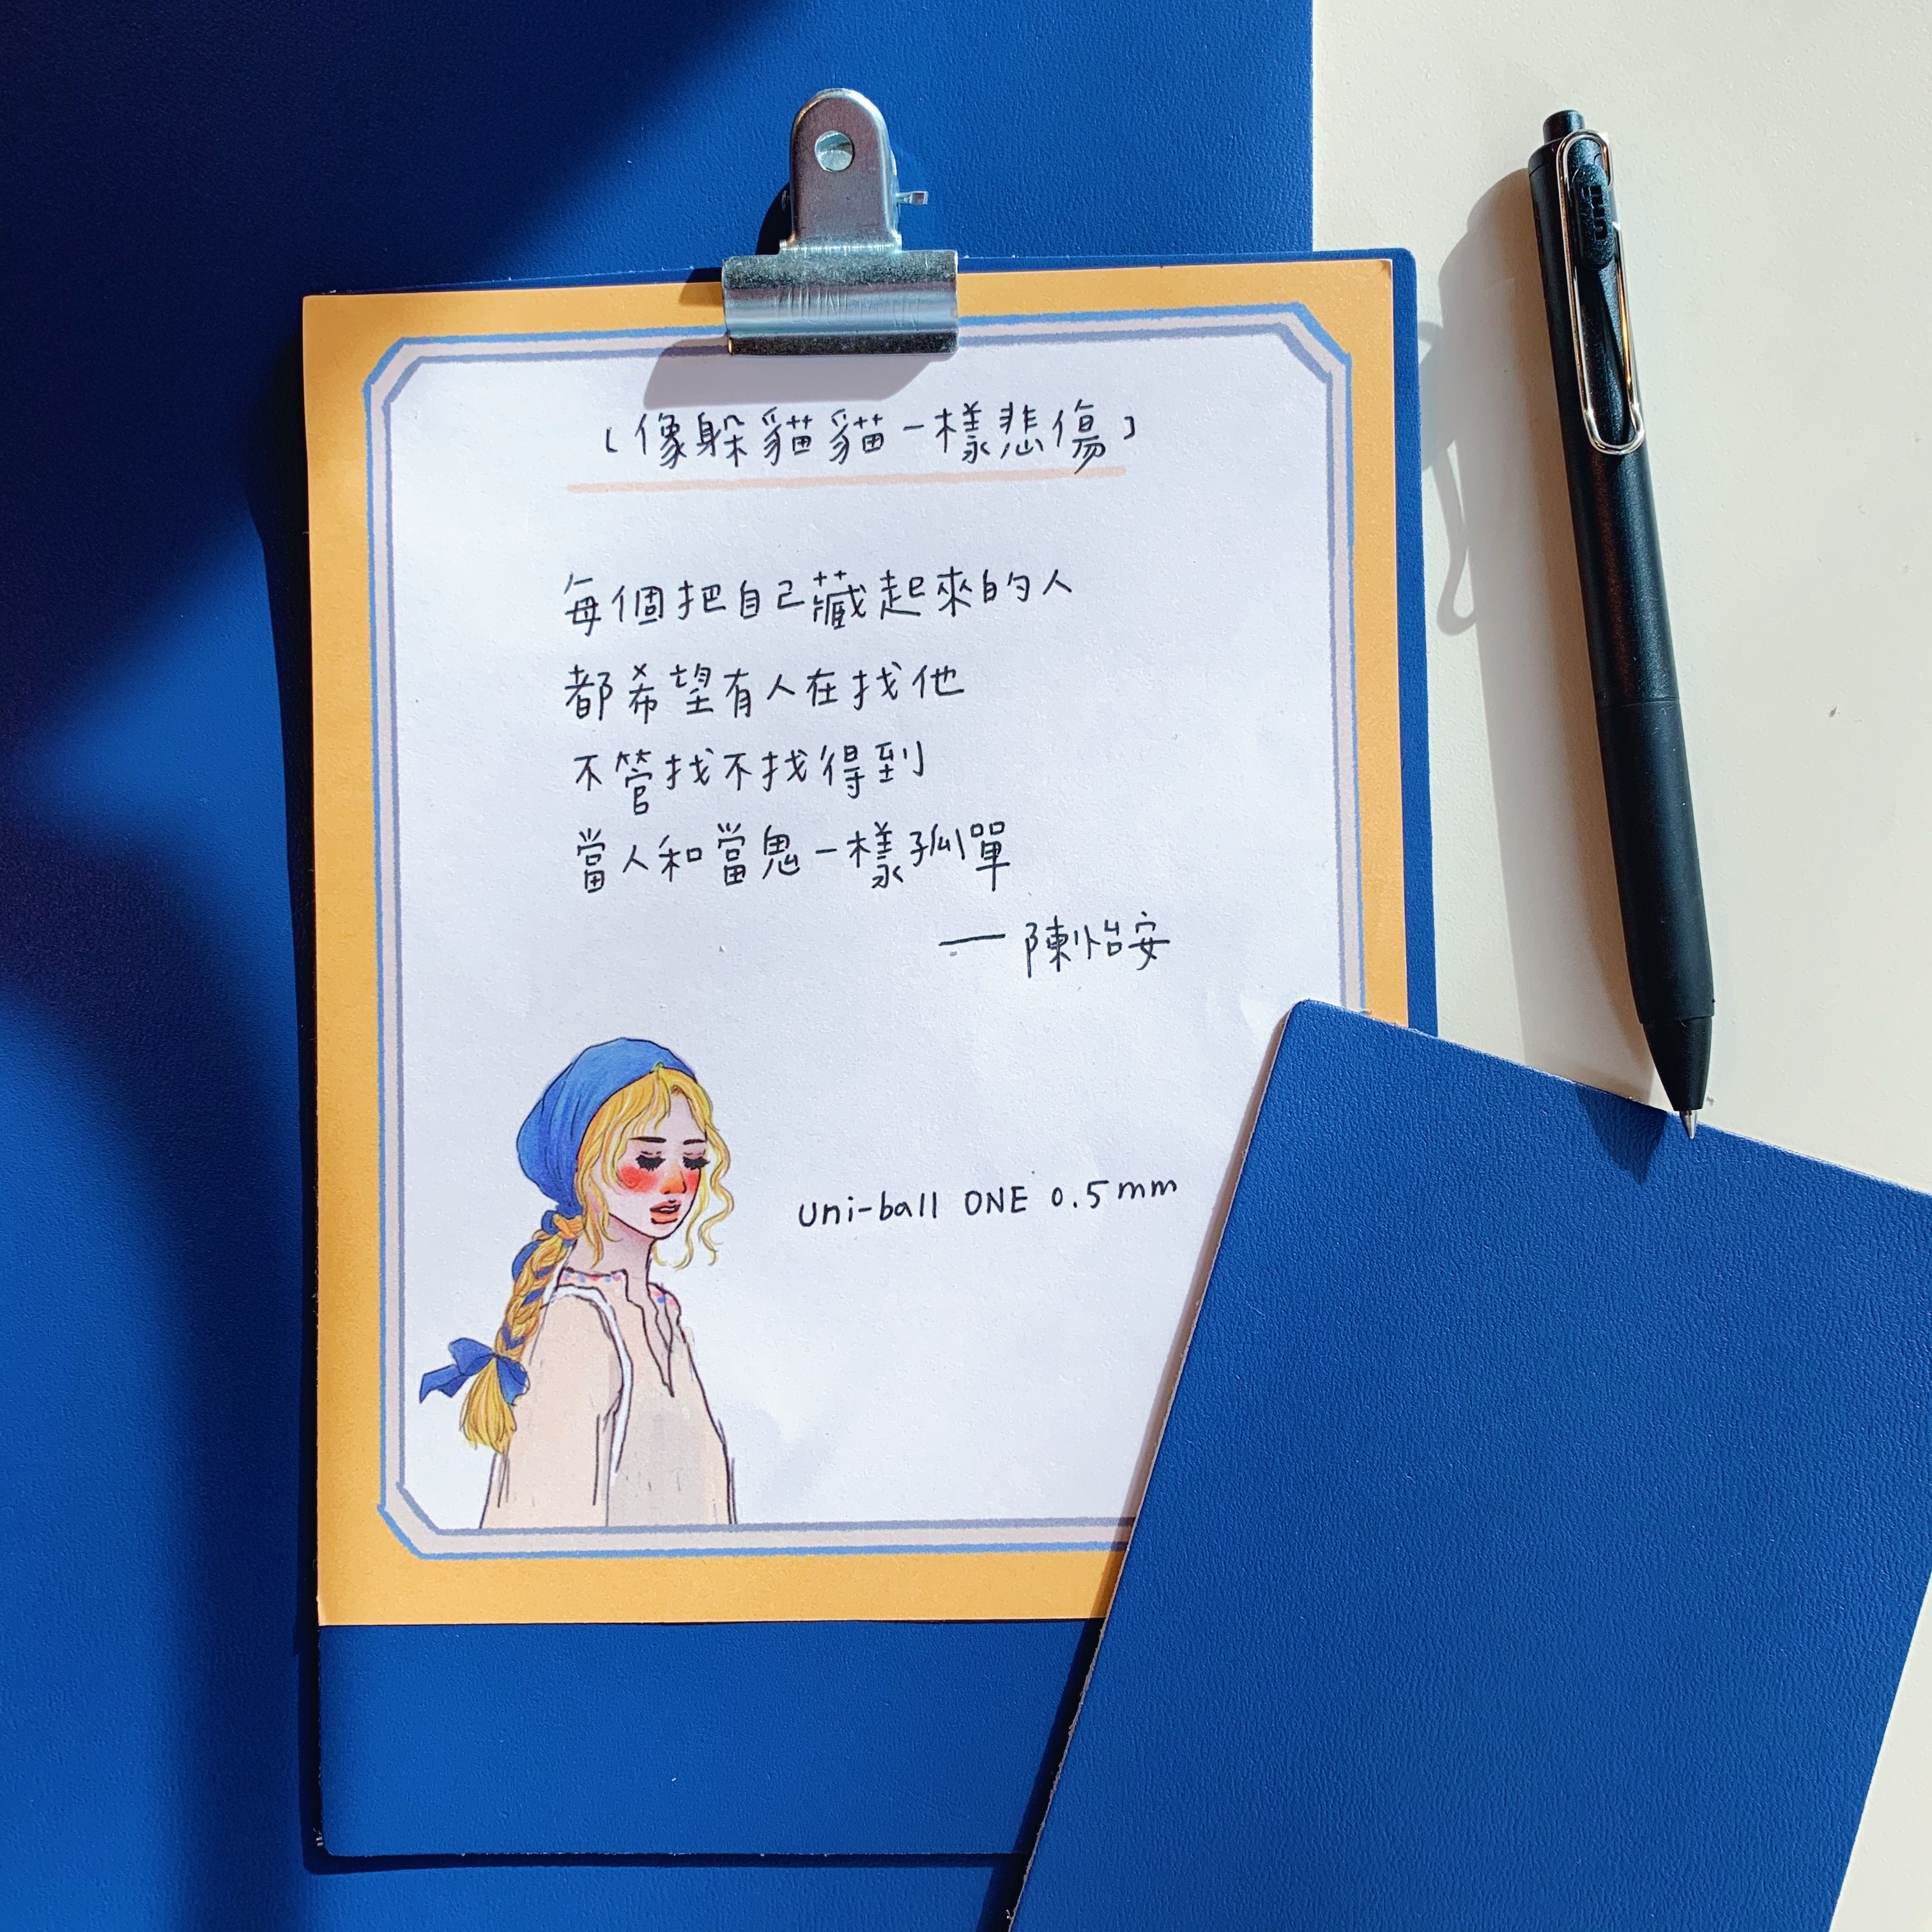 「像躲貓貓一樣悲傷」
每個把自己藏起來的人
都希望有人在找他
不管找不找得到
當人和當鬼一樣孤單
— 陳怡安
uni-ball ONE 0.5mm